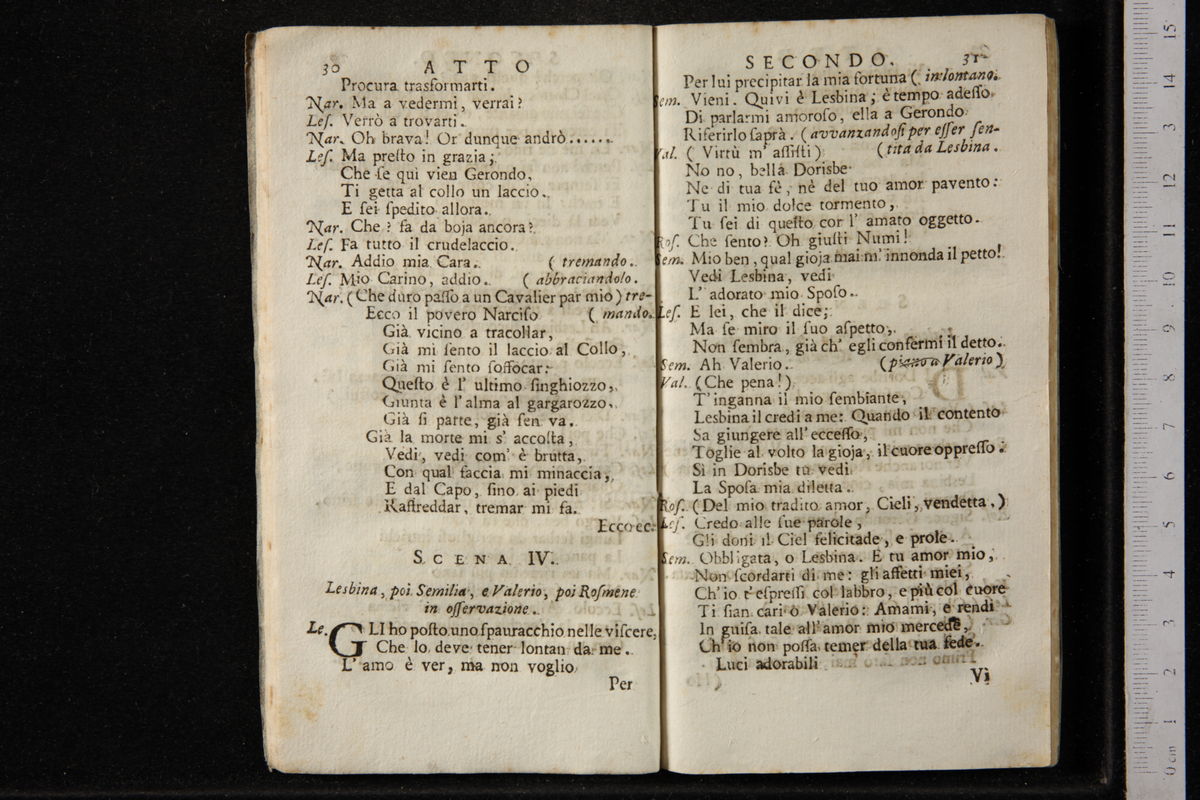 30 ATTO
Procura trasformarti.
Nar. Ma a vedermi, verrai?
Leſ. Verrò a trovarti.
Nar. Oh brava! Or dunque andrò......
Leſ. Ma preſto in grazia;
Che ſe qui vien Gerondo,
Ti getta al collo un laccio.
E ſei ſpedito allora.
Nar. Che? fa da boja ancora?
Leſ. Fa tutto il crudelaccio.
Nar. Addio mia Cara. ( tremando.
Leſ. Mio Carino, addio. ( abbraciandolo.
Nar. (Che duro paſſo a un Cavalier par mio) tre-
Ecco il povero Narciſo ( mando.
Già vicino a tracollar,
Già mi ſento il laccio al Collo,
Già mi ſento ſoffocar:
Queſto è l' ultimo ſinghiozzo,
Giunta è l'alma al gargarozzo.
Già ſi parte, già ſen va.
Già la morte mi s' accoſta,
Vedi, vedi com' è brutta,
Con qual faccia mi minaccia,
E dal Capo, ſino ai piedi
Raffreddar, tremar mi fa.
Ecco ec.
SCENA IV.
Lesbina, poi Semilia, e Valerio, poi Roſmene
in oſſervazione.
Le. GLI ho poſto uno ſpauracchio nelle viſcere,
Che lo deve tener lontan da me.
L' amo è ver, ma non voglio
Per
SECONDO. 31
Per lui precipitar la mia fortuna ( in lontano.
Sem. Vieni. Quivi è Lesbina; è tempo adeſſo
Di parlarmi amoroſo, ella a Gerondo
Riferirlo ſaprà. (avvanzandoſi per eſſer ſen-
Val. ( Virtù m' aſſiſti) (tita da Lesbina.
No no, bella Dorisbe
Ne di tua fè, nè del tuo amor pavento:
Tu il mio dolce tormento,
Tu ſei di queſto cor l' amato oggetto.
Roſ. Che ſento? Oh giuſti Numi!
Sem. Mio ben, qual gioja mai m' innonda il petto!
Vedi Lesbina, vedi
L' adorato mio Spoſo.
Leſ. E lei, che il dice;
Ma ſe miro il ſuo aſpetto,
Non ſembra, già ch' egli confermi il detto.
Sem. Ah Valerio. (piano a Valerio)
Val. (Che pena!)
T' inganna il mio ſembiante,
Lesbina il credi a me: Quando il contento
Sa giungere all' ecceſſo,
Toglie al volto la gioja, il cuore oppreſſo:
Sì in Dorisbe tu vedi
La Spoſa mia diletta.
Roſ. (Del mio tradito amor, Cieli, vendetta.)
Leſ. Credo alle ſue parole,
Gli doni il Ciel felicitade, e prole.
Sem. Obbligata, o Lesbina. E tu amor mio,
Non ſcordarti di me: gli affetti miei,
Ch' io t' eſpreſſi col labbro, e più col cuore
Ti ſian cari ò Valerio: Amami, e rendi
In guiſa tale all' amor mio mercede,
Ch' io non poſſa temer della tua fede.
Luci adorabili
Vi